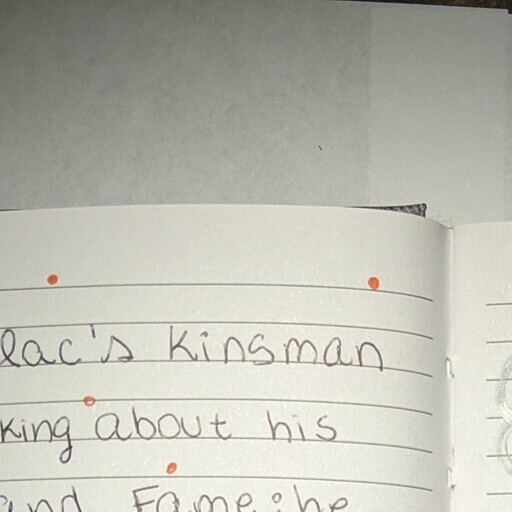 lac's Kinsman
king about his
and Fame: he